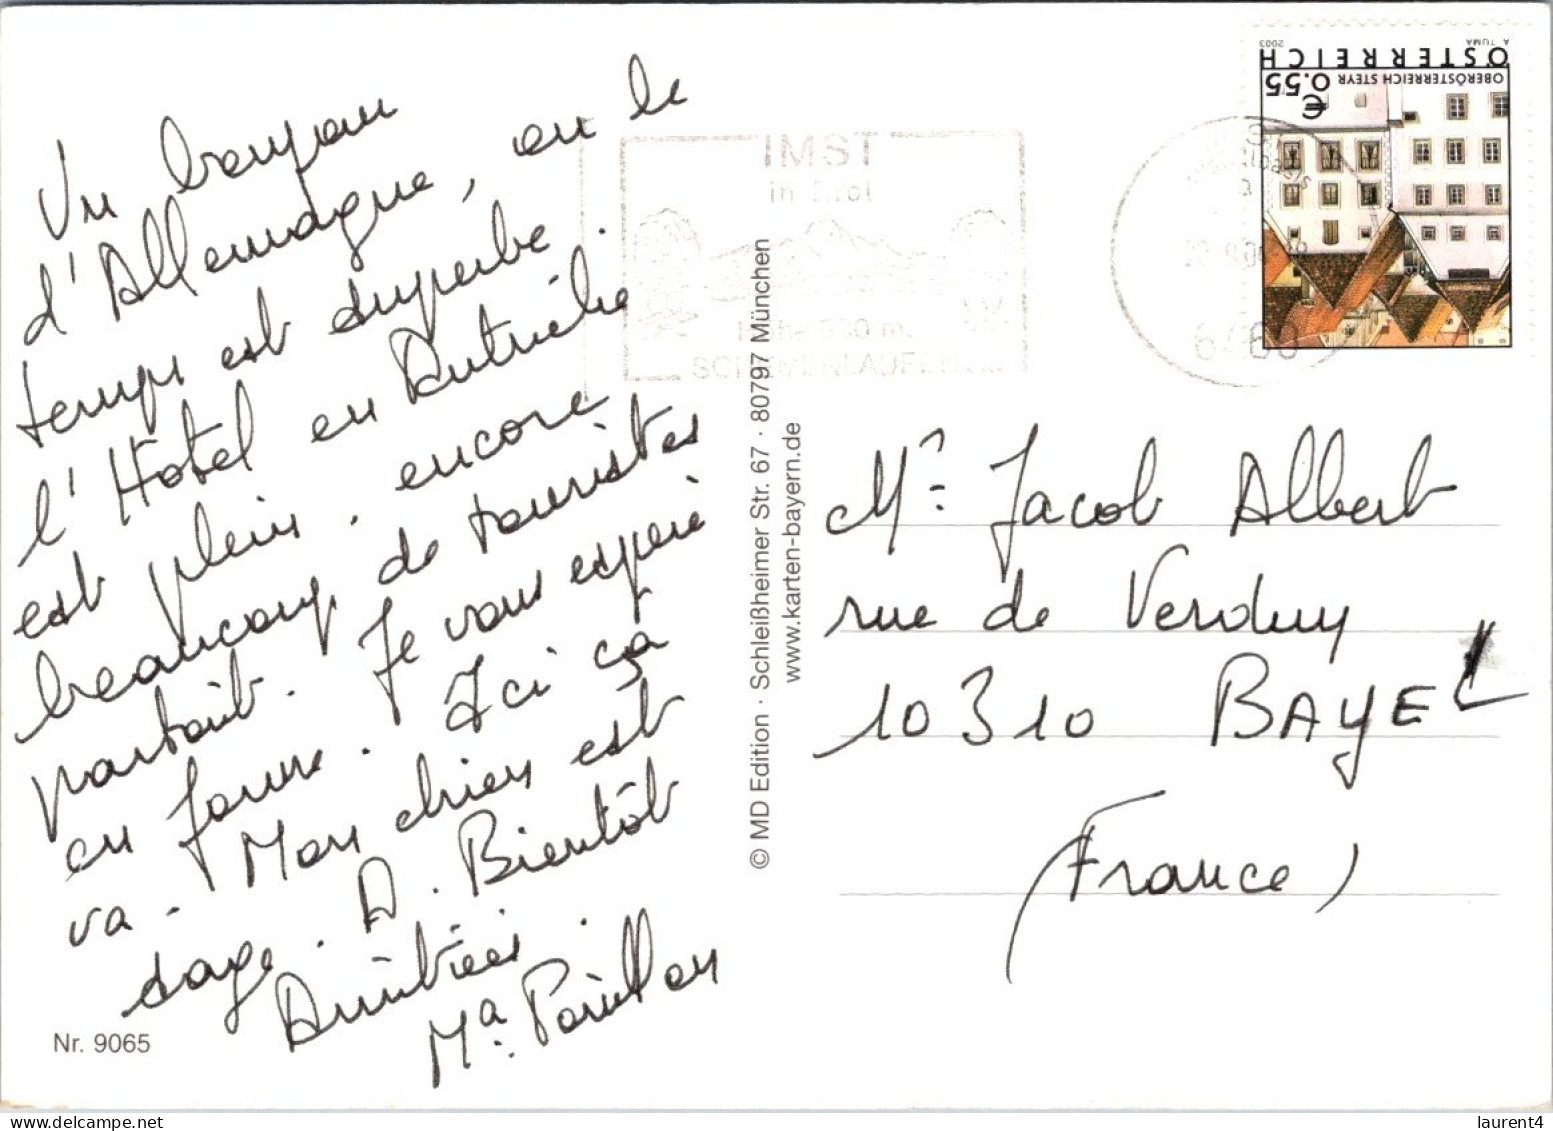 Un bonjour
d'Allemagne, ou le
temps est superbe.
l'Hotel en Autriche
est plein, encore
beaucoup de touristes
partout. Je vous espère
en forme. Ici ça
va. Mon chien est
sage. A. Bientôt
Amitiés.
Ma: Pouillon
Nr. 9065
© MD Edition · Schleißheimer Str. 67 · 80797 München
www.karten-bayern.de
IMST
in Tirol
SCHEMENLAUFEN
6460
A. TUMA 2003
ÖSTERREICH
OBERÖSTERREICH STEYR
€ 0.55
Mr: Jacob Albert
rue de Verduy
10310 BAYEL
(France)
laurent4